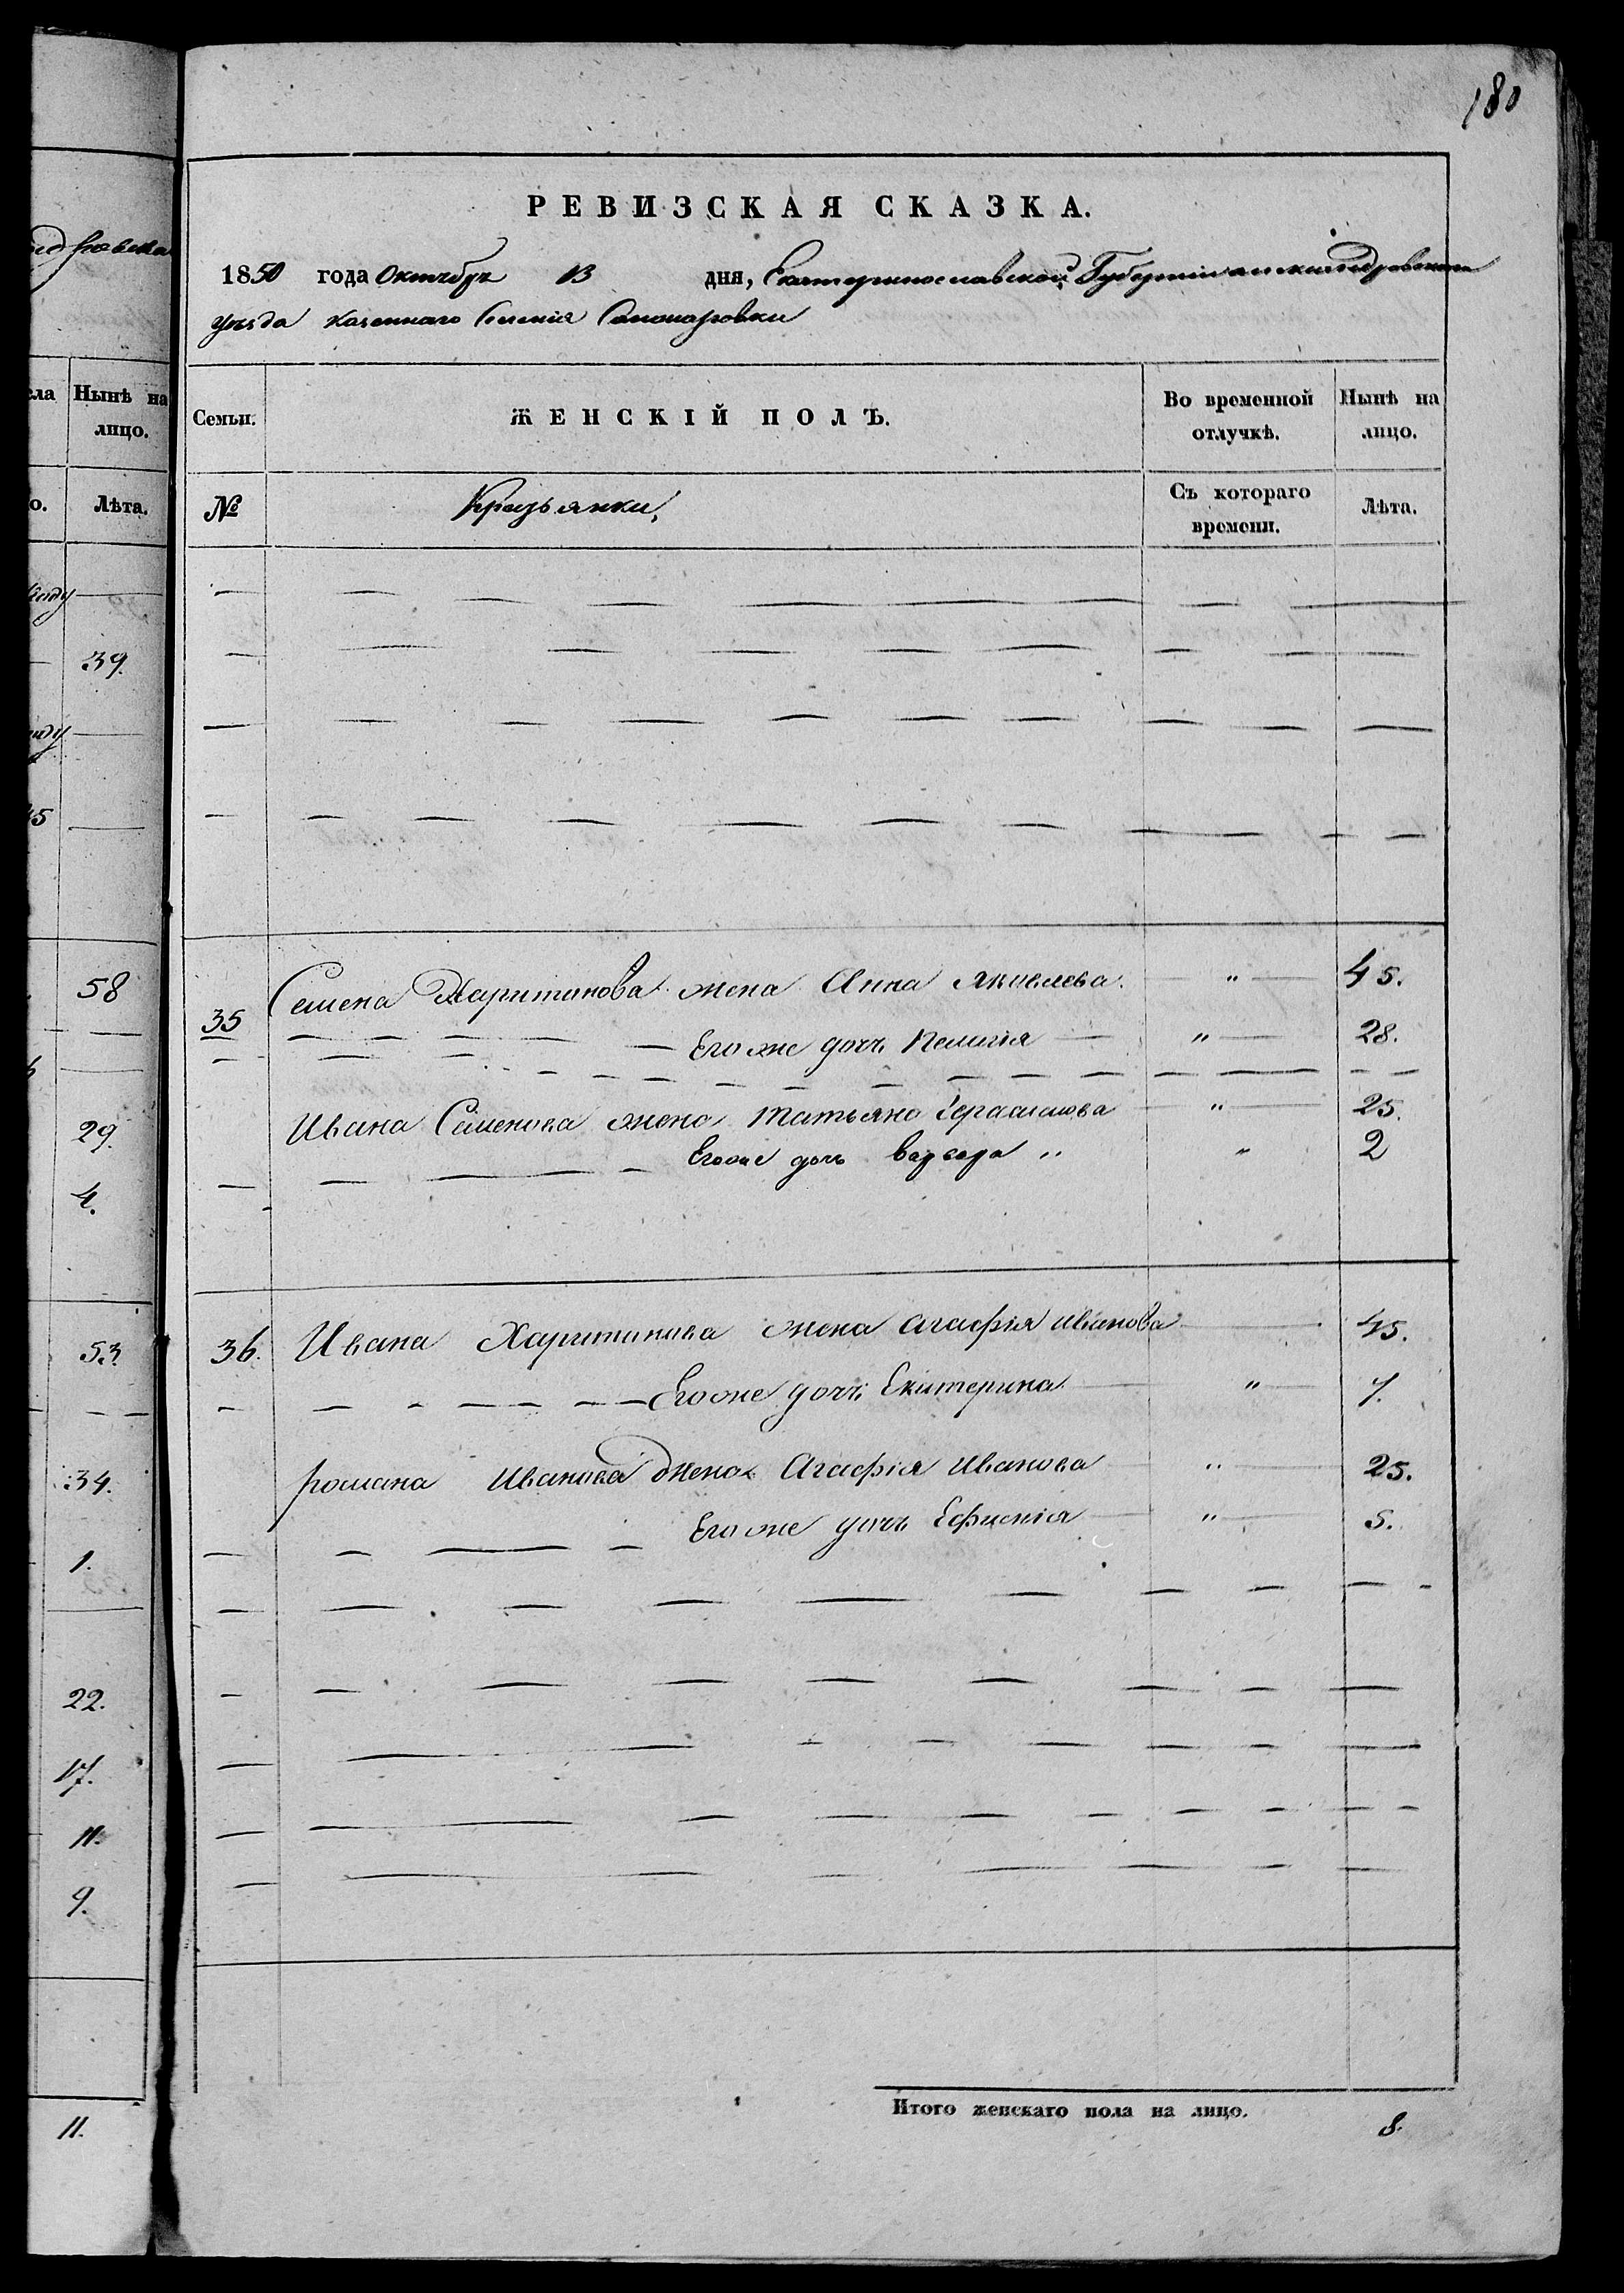 180
РЕВИЗСКАЯ СКАЗКА.
1850 года Октября 13 дня, Екатеринославской Губерніи Александровскаго
уѣзда казеннаго Селенія
Семьи.
ЖЕНСКІЙ ПОЛЪ.
Во временной отлучкѣ.
Нынѣ на лицо.
№
Крестьянки,
Съ котораго времени.
Лѣта.
35 Семена Харитинова жена Анна Яковлева " 45.
Его же дочь Пелагія " 28.
Ивана Семенова жена Татьяна Герасимова " 25.
Егоже дочь Варвара " " 2
36. Ивана Харитинова жена Агафія Иванова 45.
Егоже дочь Екатерина " 7.
Романа Иванова жена Агафія Иванова " 25.
Его же дочь Ефимія " 5.
Итого женскаго пола на лицо. 8.
Нынѣ на
лицо.
Лѣта.
39.
58
29.
4.
53.
34.
1.
22.
17.
11.
9.
11.